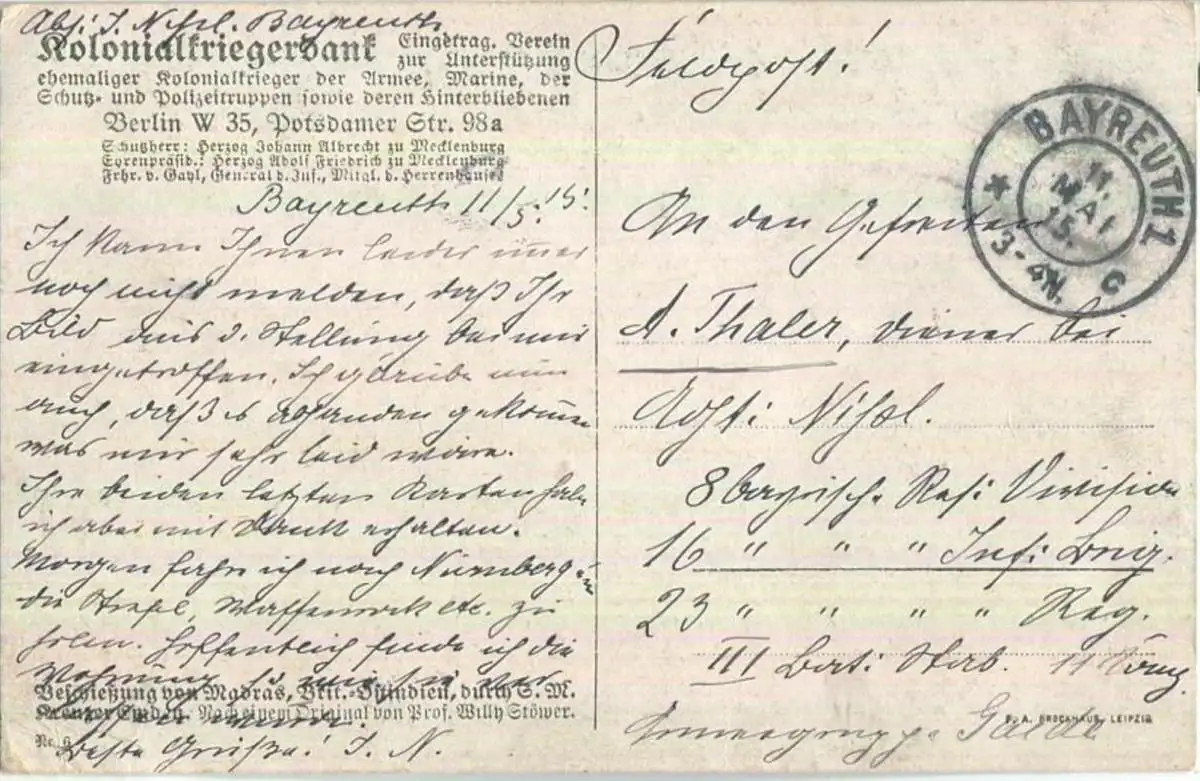 Abs: J. Nißl. Bayreuth
Kolonialkriegerdank Eingetrag. Verein
zur Unterstützung
ehemaliger Kolonialkrieger der Armee, Marine, der
Schutz- und Polizeitruppen sowie deren Hinterbliebenen
Berlin W 35, Potsdamer Str. 98a
Schutzherr: Herzog Johann Albrecht zu Mecklenburg
Ehrenpräsid.: Herzog Adolf Friedrich zu Mecklenburg
Frhr. v. Gayl, General d. Inf., Mitgl. d. Herrenhauses
Bayreuth 11/5. 15.
Ich kann Ihnen leider im̅er
noch nicht melden, daß Ihr
Bild aus d. Stellung bei mir
eingetroffen. Ich glaube nun
auch, daß es abhanden gekom̅en
was mir sehr leid wäre.
Ihre beiden letzten Karten habe
ich aber mit Dank erhalten.
Morgen fahre ich nach Nürnberg um
die Stiefel, Waffenrock etc. zu
holen. Hoffentlich finde ich die
Wohnung so wie sie
Beschießung von Madras, Brit.-Ostindien, durch S. M.
Kreuzer Emden. Nach einem Original von Prof. Willy Stöwer.
Nr. 6
Beste Grüße! J. N.
Feldpost!
BAYREUTH 1
11.
MAI
15.
3-4N.
C
An den Gefreiten
A. Thaler, Diener bei
Nißl.
8 bayrisch. Res: Division
16 " " " Inf: Brig.
23 " " " " Reg.
III Bat: Stab.
Armeegruppe Gaede
F. A. BROCKHAUS, LEIPZIG